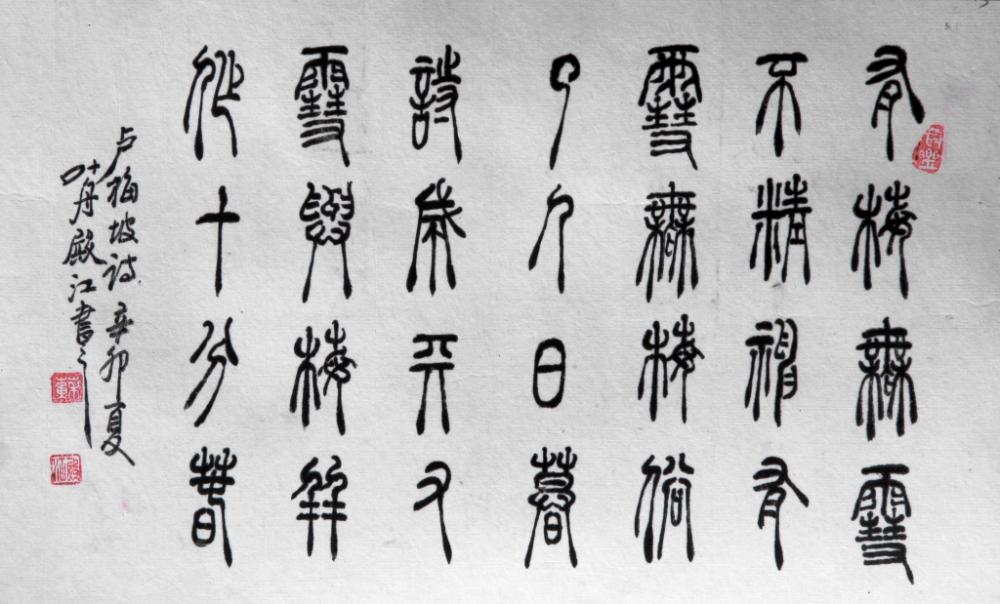 有梅無雪
不精神有
雪無梅俗
了人日暮
詩成天又
雪與梅并
作十分春
卢梅坡诗辛卯夏
殿江書之